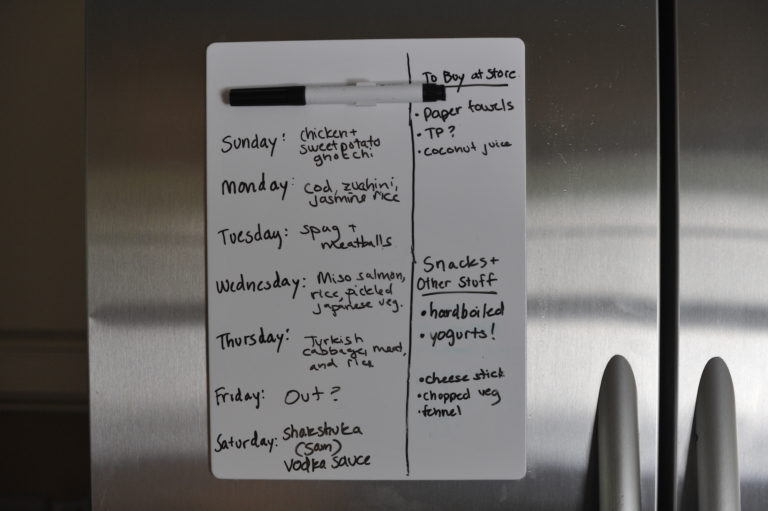 Sunday: chicken +
sweet potato
gnotchi
Monday: cod, zuchini,
jasmine rice
Tuesday: spag +
meatballs
Wednesday: Miso salmon,
rice, pickled
japanese veg.
Thursday: Turkish
cabbage, meat,
and rice
Friday: Out?
Saturday: shakshuka
(Sam)
Vodka sauce
To Buy at Store
• paper towels
• TP?
• coconut juice
Snacks +
Other Stuff
• hardboiled
• yogurts!
• cheese stick
• chopped veg
• fennel